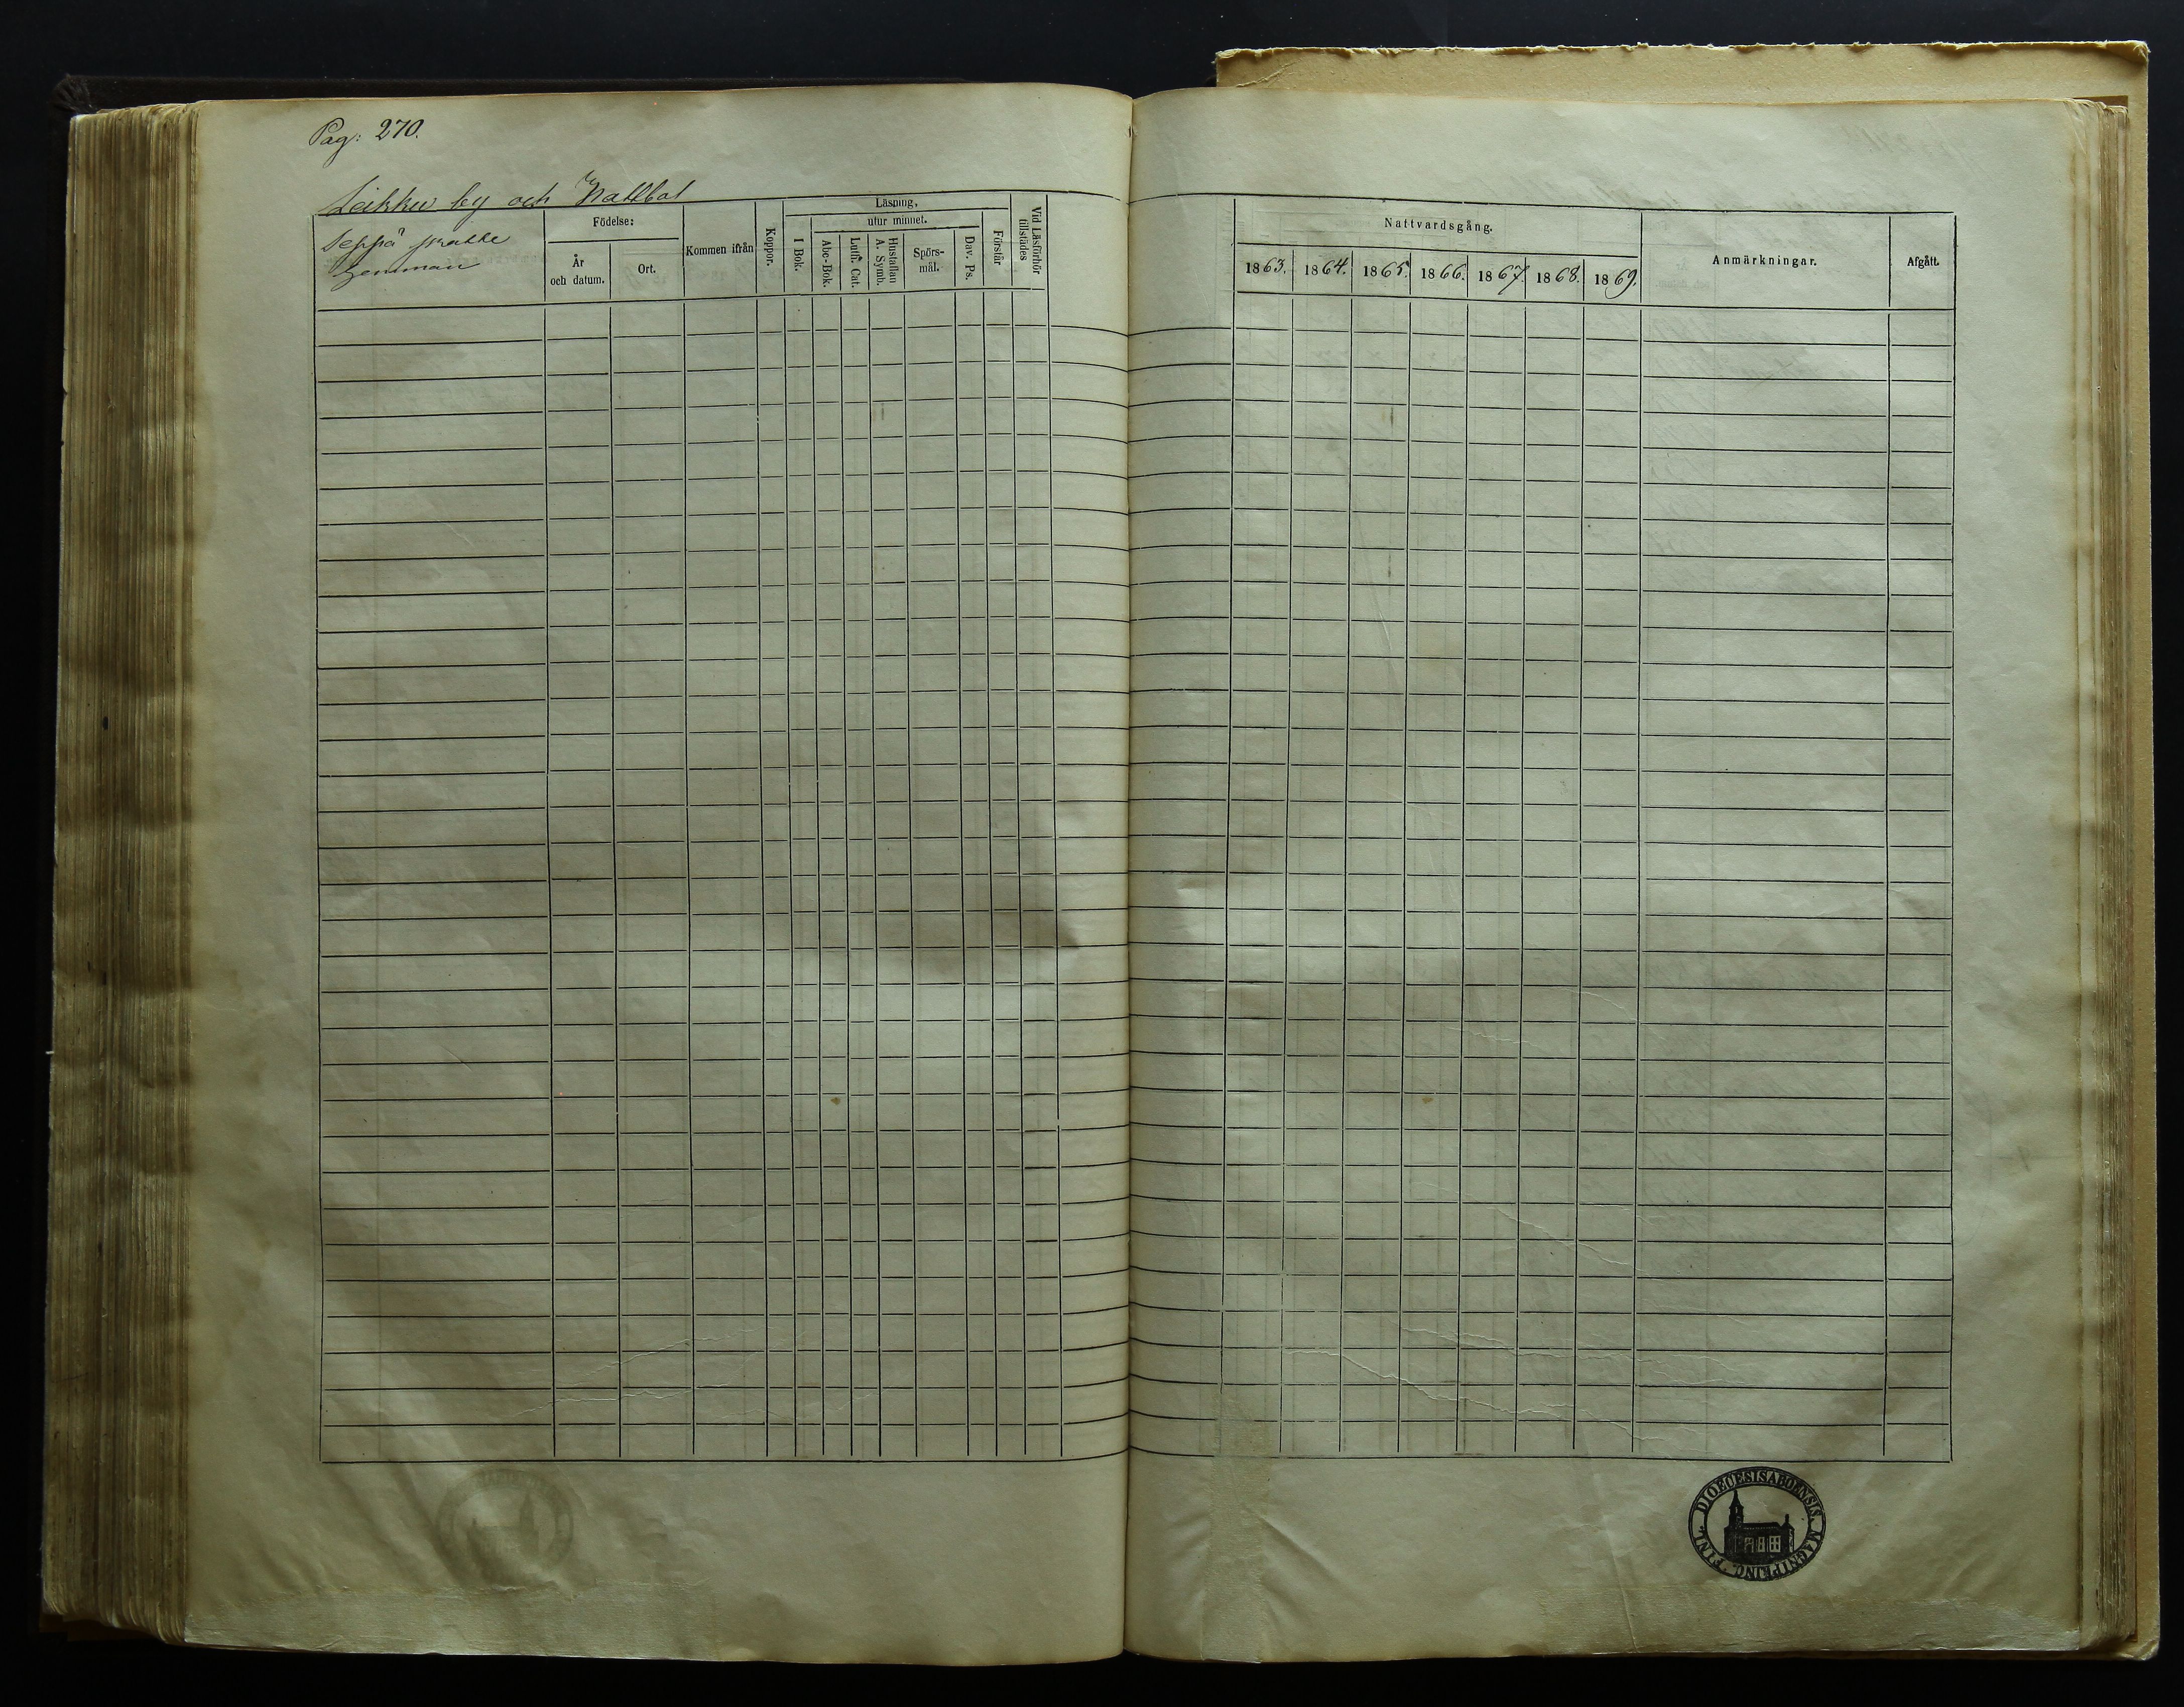 Pag: 270.
Leikku by och Hallbol
Seppä skatte
hemman
Födelse:
År
och datum.
Ort.
Kommen ifrån
Koppor.
Läsning,
utur minnet.
I Bok.
Abc-Bok.
Luth. Cat.
Hustaflan
A. Symb.
Spörs-
mål.
Dav. Ps.
Förstår
Vid Läsförhör
tillstädes
Nattvardsgång.
1863. 1864. 1865. 1866. 1867. 1868. 1869.
Anmärkningar.
Afgått.
DIOECESIS ABOENSIS. MAGNI PRINC. FINL.